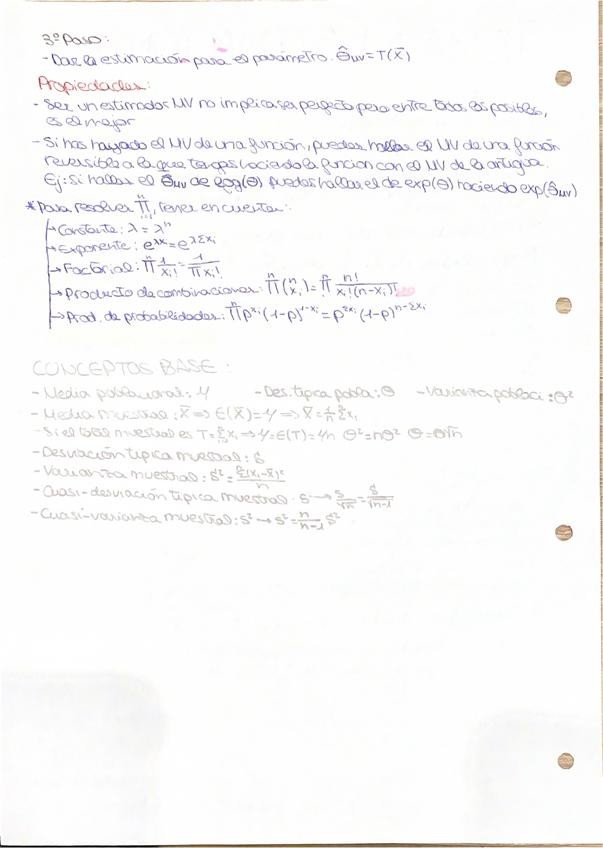 3º Paso:
- Dar la estimación para el parámetro. θ̂ᴍᴠ = T(x̄)
Propiedades:
- Ser un estimador MV no implica ser perfecto pero entre todos los posibles,
es el mejor
- Si has hayado el MV de una función, puedes hallar el MV de una función
reversible a la que tengas haciendo la función con el MV de la antigua.
Ej: Si hallar el θ̂ᴍᴠ de log(θ) puedes hallar el de exp(θ) haciendo exp(θ̂ᴍᴠ)
*Para resolver ∏ⁿᵢ₌₁, tener en cuenta:
→ Constante: λ = λⁿ
→ Exponente: e^(λxᵢ) = e^(λΣxᵢ)
→ Factorial: ∏ 1/xᵢ! = 1/∏xᵢ!
→ Producto de combinaciones: ∏ⁿ (n xᵢ) = ∏ⁿ n!/(xᵢ!(n-xᵢ)!)
→ Prod. de probabilidades: ∏ⁿ p^(xᵢ) (1-p)^(1-xᵢ) = p^(Σxᵢ) (1-p)^(n-Σxᵢ)
CONCEPTOS BASE:
- Media poblacional: μ - Des. típica pobla: θ - Varianza poblaci: θ²
- Media muestral: x̄ ⇒ E(x̄) = μ ⇒ x̄ = 1/n Σxᵢ
- Si el total muestral es T = Σxᵢ ⇒ μ = E(T) = μn θ² = nθ² θ = θ√n
- Desviación típica muestral: S
- Varianza muestral: S² = Σ(xᵢ-x̄)²/n
- Cuasi-desviación típica muestral: s → s/√n = S/√(n-1)
- Cuasi-varianza muestral: s² → s² = n/(n-1) S²